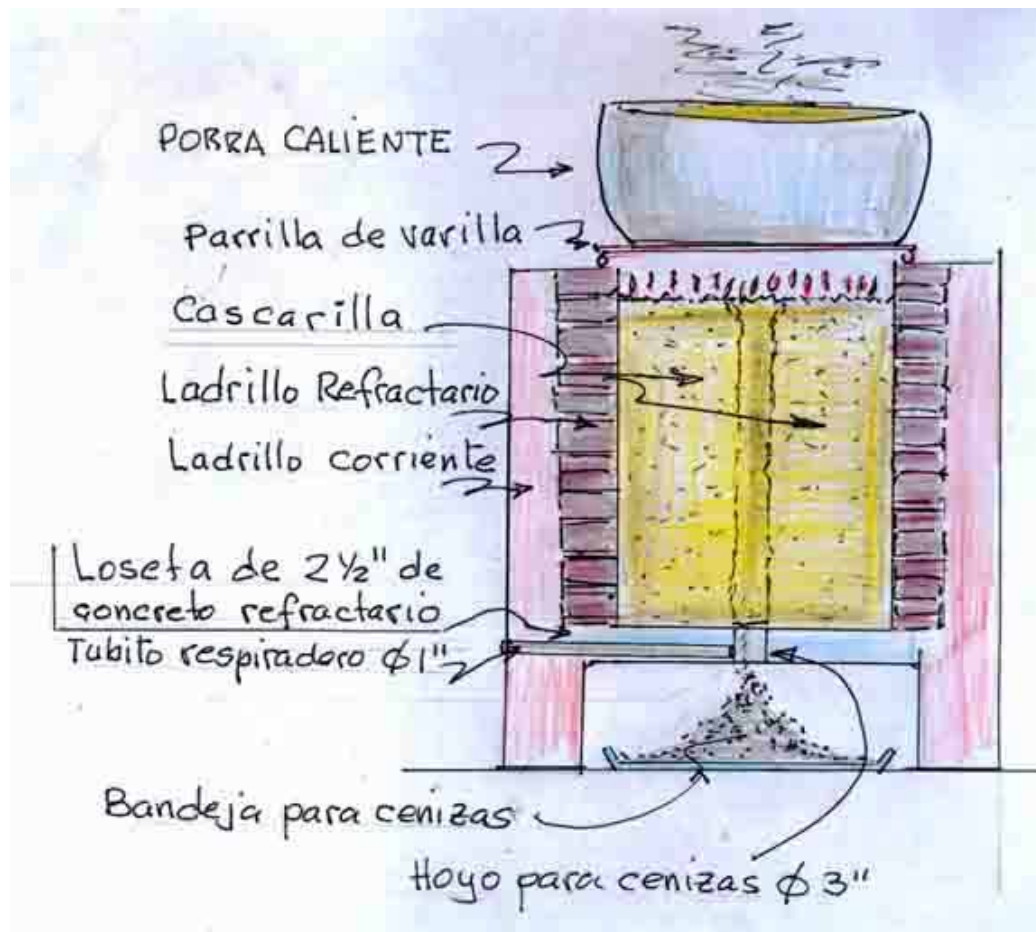 PORRA CALIENTE
Parrilla de varilla
Cascarilla
Ladrillo Refractario
Ladrillo corriente
Loseta de 2½" de
concreto refractario
Tubito respiradoro ϕ1"
Bandeja para cenizas
Hoyo para cenizas ϕ 3"